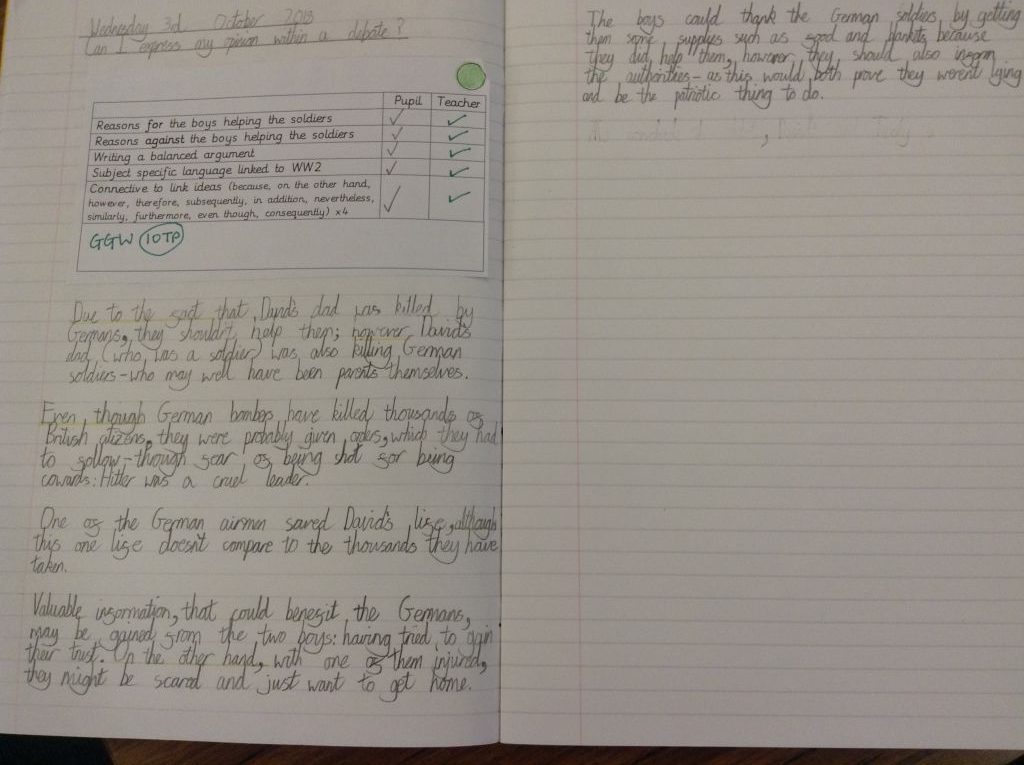 Wednesday 3rd October 2018
Can I express my opinion within a debate?
Pupil Teacher
Reasons for the boys helping the soldiers ✓ ✓
Reasons against the boys helping the soldiers ✓ ✓
Writing a balanced argument ✓ ✓
Subject specific language linked to WW2 ✓ ✓
Connective to link ideas (because, on the other hand,
however, therefore, subsequently, in addition, nevertheless, ✓ ✓
similarly, furthermore, even though, consequently) x4
GGW IOTP
Due to the fact that David's dad was killed by
Germans, they shouldn't help them; however David's
dad (who was a soldier) was also killing German
soldiers-who may well have been parents themselves.
Even though German bombers have killed thousands of
British citizens, they were probably given orders, which they had
to follow-through fear of being shot for being
cowards: Hitler was a cruel leader.
One of the German airmen saved David's life, although
this one life doesn't compare to the thousands they have
taken.
Valuable information, that could benefit the Germans,
may be gained from the two boys: having tried to gain
their trust. On the other hand, with one of them injured,
they might be scared and just want to get home.
The boys could thank the German soldiers by getting
them some supplies such as food and blankets because
they did help them, however they should also inform
the authorities - as this would both prove they weren't lying
and be the patriotic thing to do.